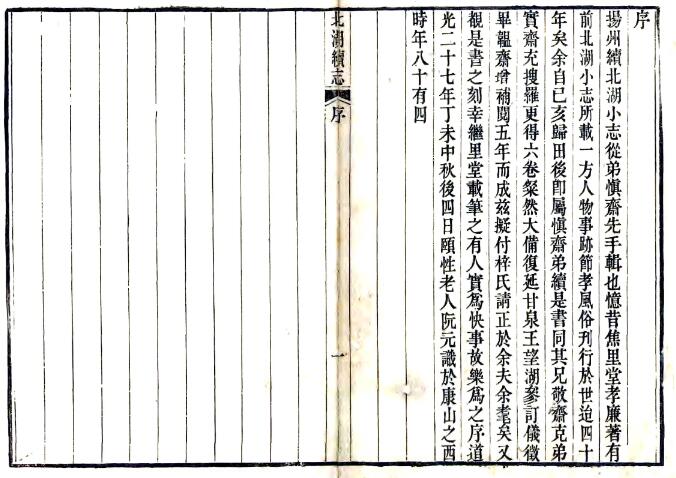 序
揚州續北湖小志從弟慎齋先手輯也憶昔焦里堂孝廉著有
前北湖小志所載一方人物事跡節孝風俗刊行於世迨四十
年矣余自己亥歸田後卽屬慎齋弟續是書同其兄敬齋克弟
實齋充搜羅更得六卷粲然大備復延甘泉王望湖參訂儀徵
畢韞齋增補閱五年而成茲擬付梓氏請正於余夫余耄矣又
覩是書之刻幸繼里堂載筆之有人實爲快事故樂爲之序道
光二十七年丁未中秋後四日頤性老人阮元識於康山之西
時年八十有四
北湖續志
序
一